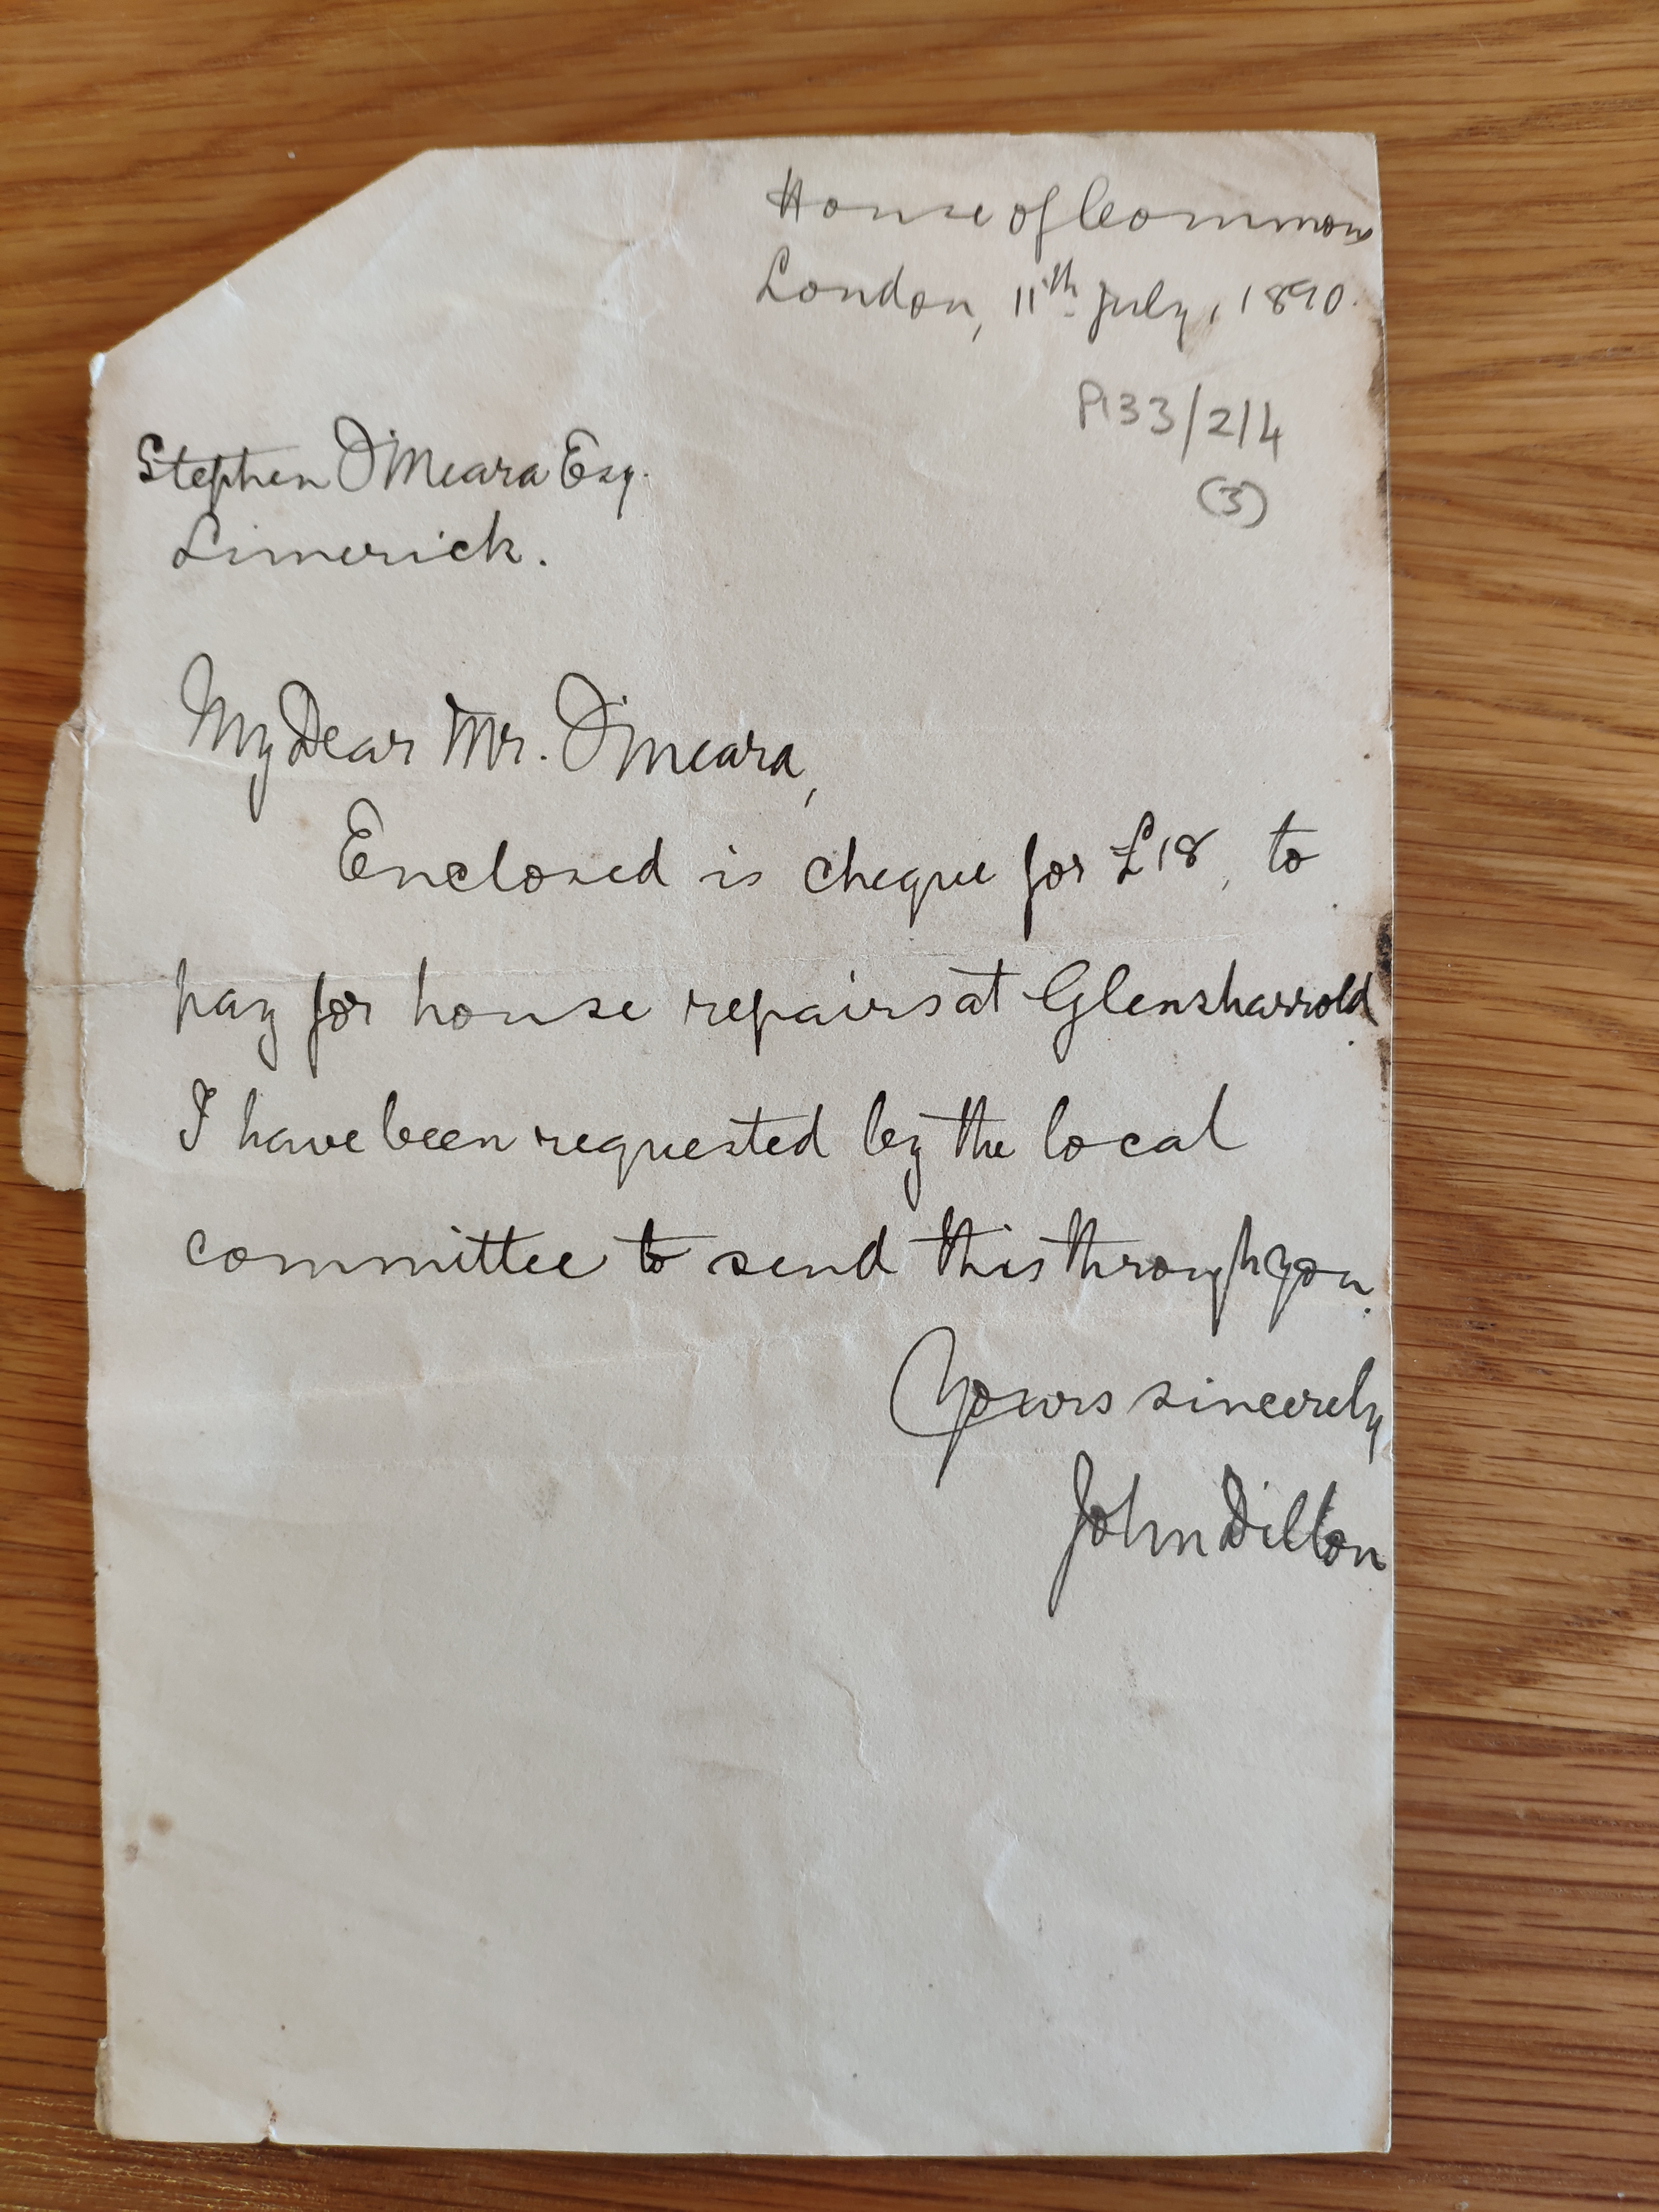 House of Commons
London, 11th July, 1890.
P133/2/4
(3)
Stephen O'Meara Esq.
Limerick.
My Dear Mr. O'Meara,
Enclosed is cheque for £18, to
pay for house repairs at Glensharrold.
I have been requested by the local
committee to send this through you.
Yours sincerely
John Dillon